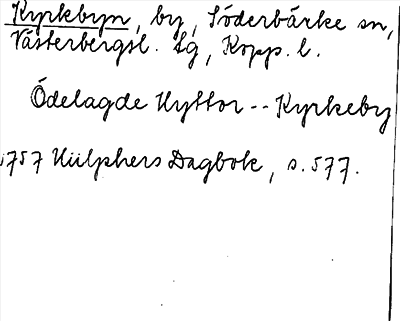 Kyrkbyn, by, Söderbärke sn,
Västerbergsl. tg, Kopp. l.
Ödelagde Hyttor -- Kyrkeby
1757 Hülphers Dagbok, s. 577.